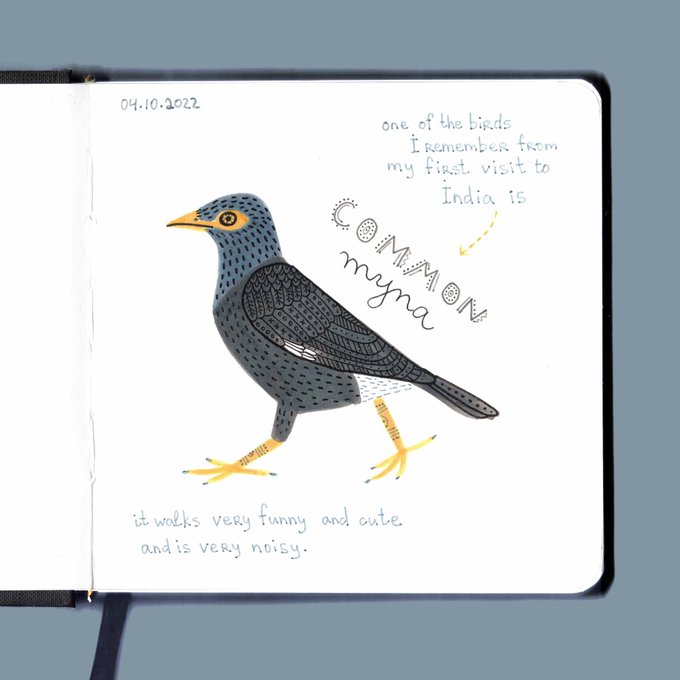 04.10.2022
one of the birds
I remember from
my first visit to
India is
COMMON
myna
it walks very funny and cute
and is very noisy.